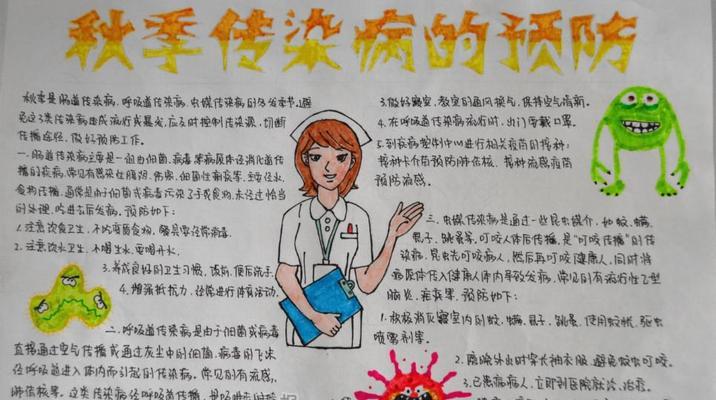 秋季传染病的预防
秋季是肠道传染病,呼吸道传染病,虫媒传染病的多发季节,避
免这3类传染病由或流行或暴发,应及时控制传染源,切断
传播途径,做好预防工作。
一.肠道传染病主要是一组由细菌、病毒等病原体经消化道传
播的疾病,常见有感染性腹泻、伤寒、细菌性痢疾等,主要经水,
食物传播,通常是由于细菌或病毒污染了手或食物,未经过恰当
的处理,吃进去后发病。预防如下:
1.注意饮食卫生,不吃变质食物,餐具要经常消毒.
2.注意饮水卫生,不喝生水,要喝开水.
3.养成良好的卫生习惯,饭前,便后洗手.
4.增强抵抗力,经常进行体育活动.
二.呼吸道传染病是由于细菌或病毒
直接通过空气传播或通过灰尘中的细菌,病毒的飞沫
经呼吸道进入体内而引起的传染病。常见的有流感,
肺结核等。这类传染病经呼吸道传播,
3.做好寝室,教室的通风换气,保持空气清新。
4.在呼吸道传染病流行时,出门要戴口罩。
5.到疾病控制中心进行相关疫苗的接种:
接种卡介苗预防肺结核、接种流感疫苗
预防流感。
三.虫媒传染病是通过一些昆虫媒介,如蚊,螨,
虱子,跳蚤等,叮咬人体后传播,是“叮咬传播”的传
染病,昆虫先叮咬病人,然后再叮咬健康人,同时将
病原体传入健康人体内导致发病,常见的有流行性乙型
脑炎,疟疾等,预防如下:
1.积极消灭寝室内的蚊,螨,虱子,跳蚤,使用蚊帐,驱虫
喷雾剂等.
2.晚间外出时穿长袖衣服,避免蚊虫叮咬.
3.已患病病人,立即到医院就诊,治疗.